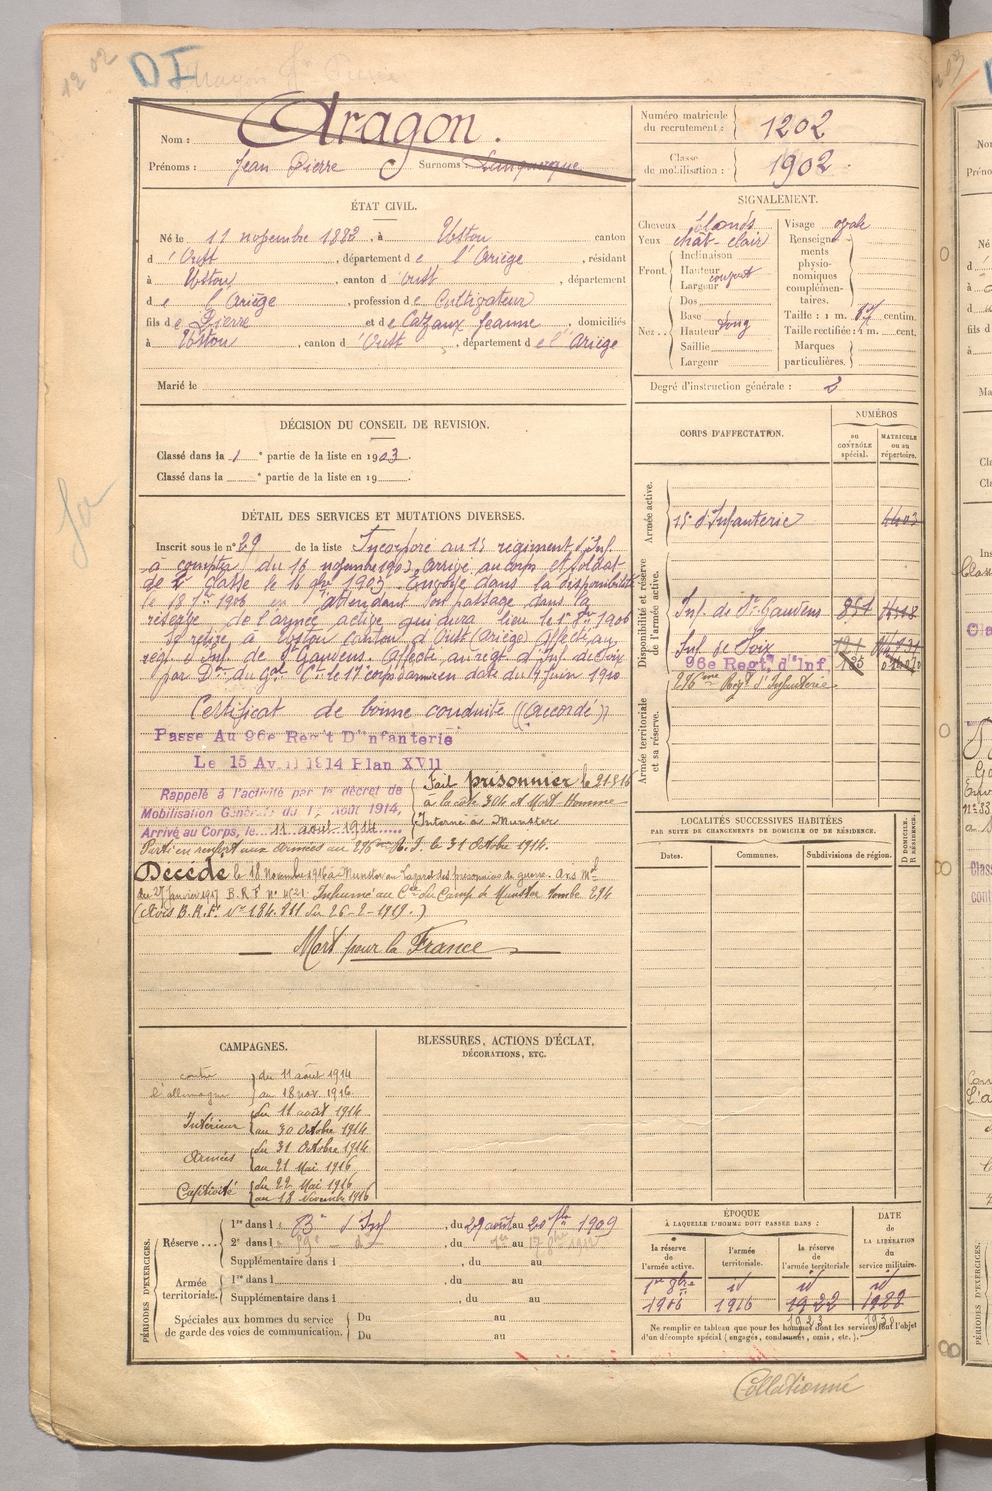 1202
DI
Aragon Jn Pierre
Nom : Aragon.
Prénoms : Jean Pierre Surnoms : Languorque
Numéro matricule du recrutement : 1202
Classe de mobilisation : 1902
ÉTAT CIVIL.
Né le 11 novembre 1882, à Ustou canton
d'Oust, département de l'Ariège, résidant
à Ustou, canton d'Oust, département
de l'Ariège, profession de Cultivateur
fils de Pierre et de Cazaux Jeanne, domiciliés
à Ustou, canton d'Oust, département de l'Ariège
Marié le
SIGNALEMENT.
Cheveux blonds Visage ovale
Yeux chât-clair Renseignements physionomiques complémentaires.
Front. Inclinaison
Hauteur
Largeur
Nez. Dos
Base
Hauteur long
Saillie
Largeur
Taille : 1 m. 67 centim.
Taille rectifiée : 1 m. cent.
Marques particulières.
Degré d'instruction générale : 2
DÉCISION DU CONSEIL DE REVISION.
Classé dans la 1e partie de la liste en 1903.
Classé dans la e partie de la liste en 19
CORPS D'AFFECTATION.
NUMÉROS
au CONTRÔLE spécial.
MATRICULE ou au répertoire.
Armée active.
15e d'Infanterie 4403
Disponibilité et réserve de l'armée active.
Inf. de St Gaudens 851
Inf. de Foix
96e Regt, d'Inf,
Armée territoriale et sa réserve.
296ème Régt d'Infanterie.
DÉTAIL DES SERVICES ET MUTATIONS DIVERSES.
Inscrit sous le n° 29 de la liste Incorporé au 15 régiment d'Inf.
à compter du 16 novembre 1903, arrivé au corps et soldat
de 2e classe le 16 9bre 1903. Envoyé dans la disponibilité
le 18 7bre 1906 en attendant son passage dans la
réserve de l'armée active, qui aura lieu le 1er 8bre 1906
Se retire à Ustou canton d'Oust (Ariège) affecté au
régt d'Inf. de St Gaudens. Affecté au régt d'Inf. de Foix
par Don du Gal Ct le 17 corps d'armée en date du 19 juin 1910
Certificat de bonne conduite "Accordé"
Passe Au 96e Regt D'Infanterie
Le 15 Avril 1914 Plan XVII
Rappelé à l'activité par le décret de
Mobilisation Générale du 1er Août 1914,
Arrivé au Corps, le 11 août 1914
Fait prisonnier le 21.5.16
à la côte 304 et Mort Homme
Interné à Munster
Parti en renfort aux Armées au 296ème R. I. le 31 Octobre 1914.
Décédé le 18 Novembre 1916 à Munster au Lazaret des prisonniers de guerre. Avis Mel
du 27 Janvier 1917 B.R.F. Inhumé au Cre du Camp de Munster tombe 294
(Avis B.R.F. No 184.811 du 26-2-1919.)
Mort pour la France
LOCALITÉS SUCCESSIVES HABITÉES
PAR SUITE DE CHANGEMENTS DE DOMICILE OU DE RÉSIDENCE.
Dates. Communes. Subdivisions de région. D DOMICILE. R RÉSIDENCE.
CAMPAGNES.
contre l'allemagne du 11 août 1914
au 18 nov. 1916
Intérieur du 11 août 1914
au 30 Octobre 1914
Armées du 31 Octobre 1914
au 21 Mai 1916
Captivité du 22 Mai 1916
au 18 Novembre 1916
BLESSURES, ACTIONS D'ÉCLAT,
DÉCORATIONS, ETC.
PÉRIODES D'EXERCICES.
Réserve... 1re dans l 83e d'Inf, du 29 août au 20 7bre 1909
2e dans l, du au
Supplémentaire dans l, du au
Armée territoriale. 1re dans l, du au
Supplémentaire dans l, du au
Spéciales aux hommes du service de garde des voies de communication. Du au
Du au
ÉPOQUE
À LAQUELLE L'HOMME DOIT PASSER DANS :
la réserve de l'armée active. l'armée territoriale. la réserve de l'armée territoriale
DATE de LA LIBÉRATION du service militaire.
1er 8bre 1906 id 1916 id 1922 id 1928
1923 1930
Ne remplir ce tableau que pour les hommes dont les services font l'objet
d'un décompte spécial (engagés, condamnés, omis, etc.).
Collationné